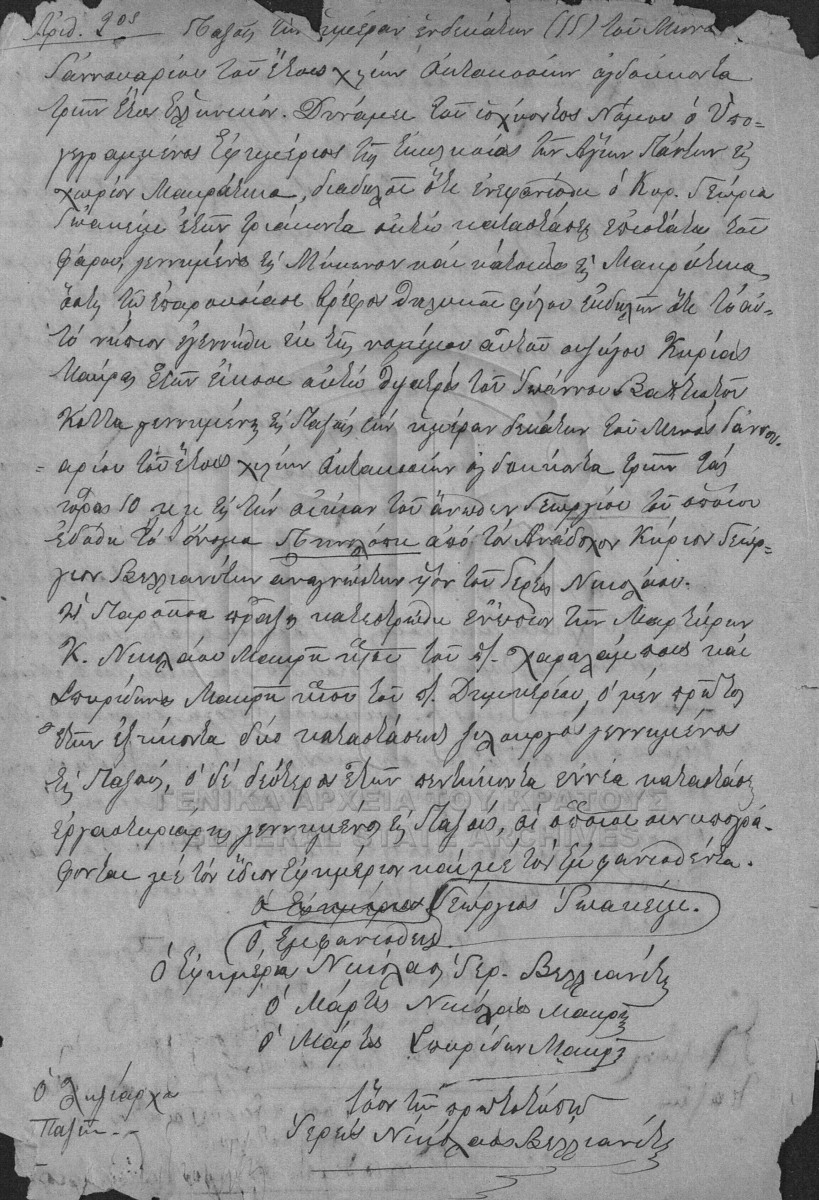 Ἀριθ. 2ος Παξοὶ τὴν ἡμέραν ἑνδεκάτην (11) τοῦ Μηνὸς
Ἰαννουαρίου τοῦ ἔτους χιλίων ὀκτακοσίων ὀγδοήκοντα
τριῶν ἔτος Ἑλληνικόν. Δυνάμει τοῦ ἰσχύοντος Νόμου ὁ Ὑπο-
γεγραμμένος Ἐφημέριος τῆς Ἐκκλησίας τῶν Ἁγίων Πάντων εἰς
χωρίον Μακράτικα, διαδηλοῖ ὅτι ἐνεφανίσθη ὁ Κυρ. Γεώργιος
Ἰωακεὶμ ἐτῶν τριάκοντα ὀκτὼ καταστάσεως ἐπιστάτης τοῦ
φάρου, γεννημένος εἰς Μύκονον καὶ κάτοικος εἰς Μακράτικα
ὅστις τῷ ἐπαρουσίασε βρέφος θηλυκοῦ φύλου ἐκδηλῶν ὅτι τὸ αὐ-
τὸ νήπιον ἐγεννήθη ἐκ τῆς νομίμου αὐτοῦ συζύγου Κυρίας
Μαύρας ἐτῶν εἴκοσι ὀκτὼ θυγατρὸς τοῦ Ἰωάννου Βαπτιστοῦ
γεννημένης εἰς Παξοὺς τὴν ἡμέραν δεκάτην τοῦ Μηνὸς Ἰαννου-
αρίου τοῦ ἔτους χιλίων ὀκτακοσίων ὀγδοήκοντα τριῶν τὰς
ὥρας 10 εἰς τὴν οἰκίαν τοῦ ἄνωθεν Γεωργίου τοῦ ὁποίου
ἐδόθη τὸ ὄνομα Πηνελόπη ἀπὸ τὸν Ἀνάδοχον Κύριον Γεώρ-
γιον Βελλιανίτην ἀναγνώστην υἱὸν τοῦ Ἱερέως Νικολάου.
Ἡ Παροῦσα πρᾶξις κατεστρώθη ἐνώπιον τῶν Μαρτύρων
Κ. Νικολάου Μακρῆ τοῦ π. Χαραλάμπους καὶ
Σπυρίδωνος Μακρῆ τοῦ π. Δημητρίου, ὁ μὲν πρῶτος
ἐτῶν ἑξήκοντα δύο καταστάσεως ξυλουργὸς γεννημένος
εἰς Παξούς, ὁ δὲ δεύτερος ἐτῶν πεντήκοντα ἐννέα καταστάσεως
ἐργαστηριάρης γεννημένος εἰς Παξούς, οἱ ὁποῖοι συνυπογρά-
φονται μὲ τὸν ἴδιον Ἐφημέριον καὶ μὲ τὸν ἐμφανισθέντα.
Γεώργιος Ἰωακείμ.
Ὁ Ἐμφανισθείς.
Ὁ Ἐφημέριος Νικόλαος Ἱερ. Βελλιανίτης
Ὁ Μάρτυς Νικόλαος Μακρῆς
Ὁ Μάρτυς Σπυρίδων Μακρῆς
Ὁ Ληξίαρχος
Παξῶν
Ἴσον τῷ πρωτοτύπῳ
Ἱερεὺς Νικόλαος Βελλιανίτης
ΓΕΝΙΚΑ ΑΡΧΕΙΑ ΤΟΥ ΚΡΑΤΟΥΣ
GENERAL STATE ARCHIVES